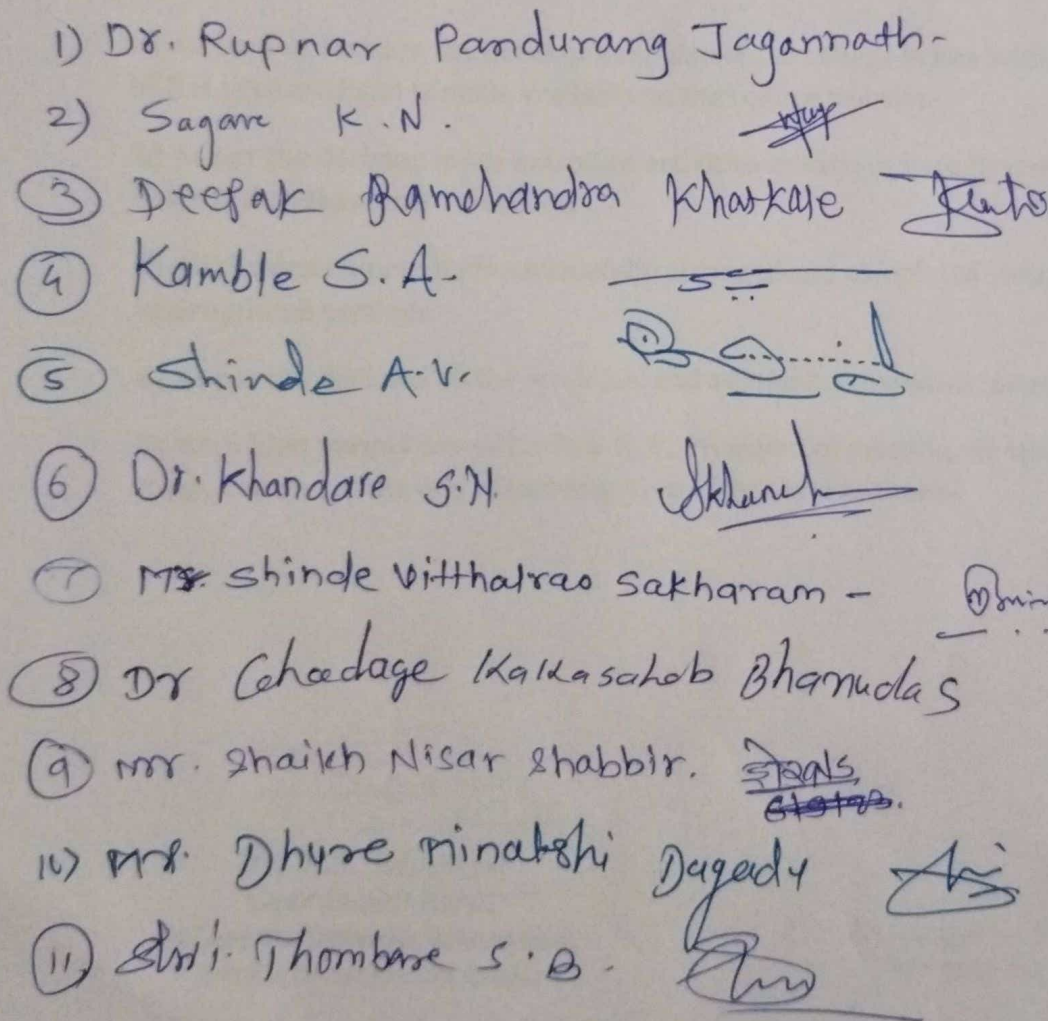 1) Dr. Rupnar Pandurang Jagannath-
2) Sagare K.N.
3 Deepak Ramchandra Kharkale
4 Kamble S.A.-
5 Shinde A.V.
6 Dr. Khandare S.N. Skhandare
7 Mr. Shinde Vitthalrao Sakharam -
8 Dr Ghadage Kakasaheb Bhanudas
9 Mr. Shaikh Nisar Shabbir.
10) Mrs. Dhyre Minakshi Dagadu
11 Shri. Thombare S.B.